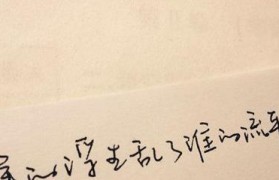 的浮生乱了谁的流年